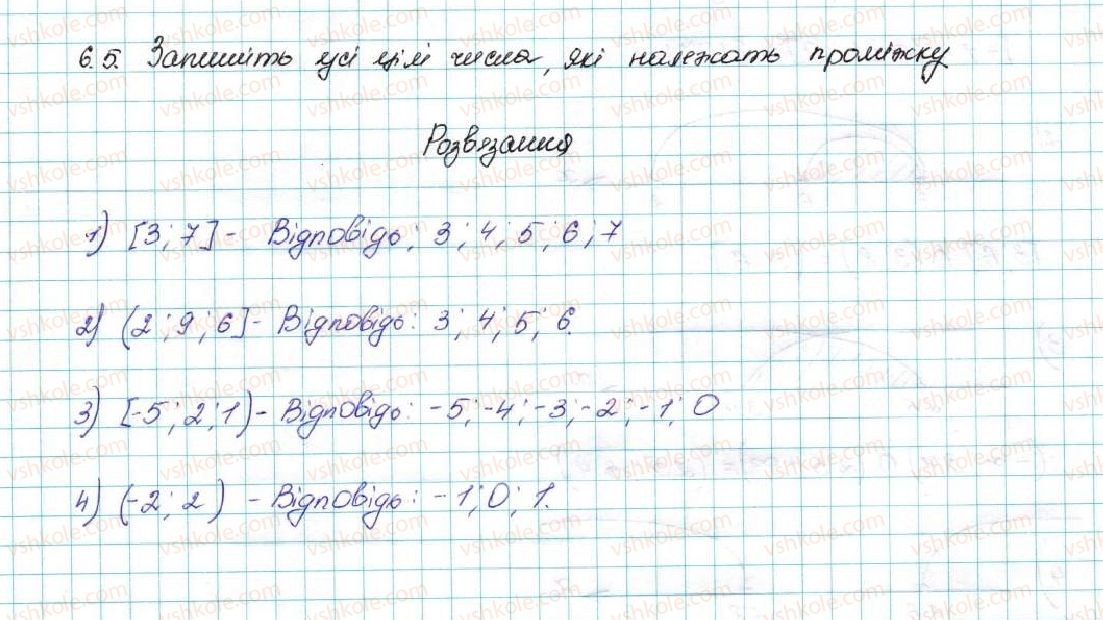 6.5. Запишіть усі цілі числа, які належать проміжку
Розвязання
1) [3; 7] - Відповідь: 3; 4; 5; 6; 7
2) (2; 9; 6] - Відповідь: 3; 4; 5; 6.
3) [-5; 2; 1) - Відповідь: -5; -4; -3; -2; -1; 0
4) (-2; 2) - Відповідь: -1; 0; 1.